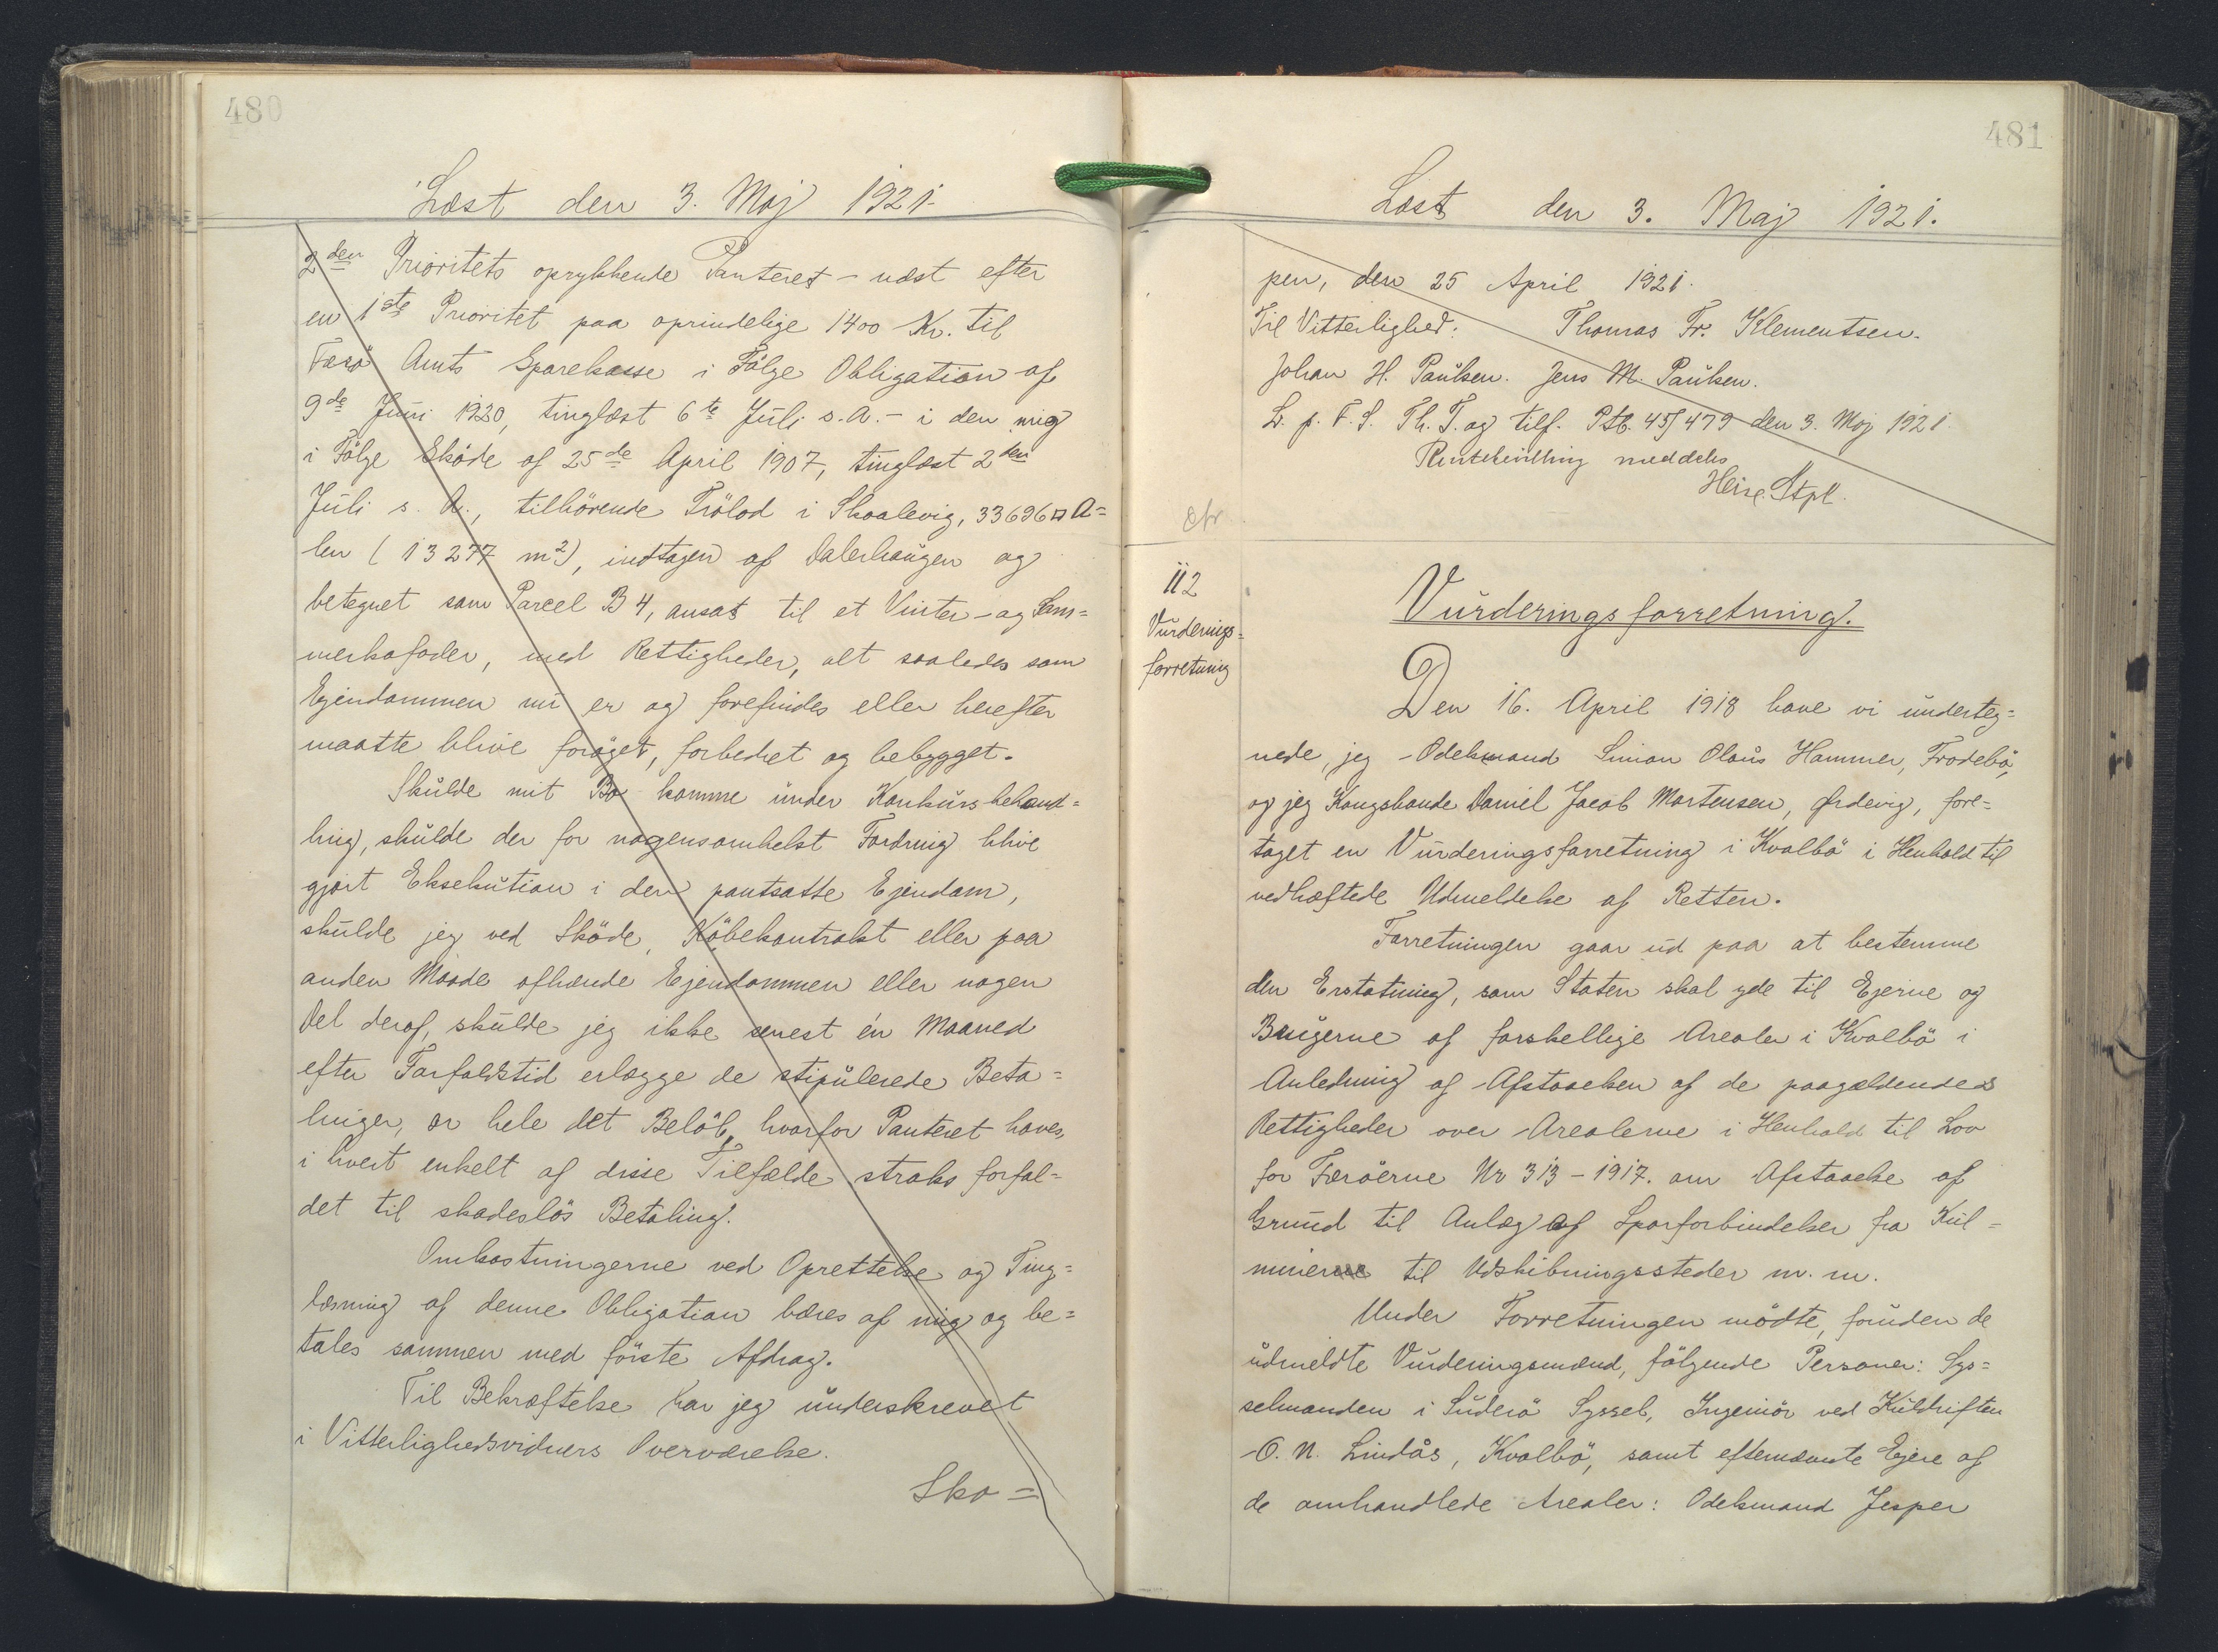 480
Læst den 3. Maj 1921.
2den Prioritets oprykkende Panteret - næst efter
en 1ste Prioritet paa oprindelige 1400 Kr. til
Færø Amts Sparekasse i Følge Obligation af
9de Juni 1920, tinglæst 6te Juli s. A. - i den mig
i Følge Skøde af 25de April 1907, tinglæst 2den
Juli s. A., tilhørende Trølod i Skaalevig, 33696 □ A=
len (13277 m2), indtagen af Dalerhaugen og
betegnet som Parcel B 4, ansat til et Vinter- og Som=
merkofoder, med Rettigheder, alt saaledes som
Ejendommen nu er og forefindes eller herefter
maatte blive forøget, forbedret og bebygget.
Skulde mit Bo komme under Konkursbehand=
ling, skulde der for nogensomhelst Fordring blive
gjort Eksekution i den pantsatte Ejendom,
skulde jeg ved Skøde, Købekontrakt eller paa
anden Maade afhænde Ejendommen eller nogen
Del deraf, skulde jeg ikke senest én Maaned
efter Forfaldstid erlægge de stipulerede Beta=
linger, er hele det Beløb, hvorfor Panteret haves,
i hvert enkelt af disse Tilfælde straks forfal=
det til skadesløs Betaling.
Omkostningerne ved Oprettelse og Ting=
læsning af denne Obligation bæres af mig og be=
tales sammen med første Afdrag.
Til Bekræftelse har jeg underskrevet
i Vitterlighedsvidners Overværelse.
Sko=
481
Læst den 3. Maj 1921.
pen, den 25 April 1921.
Til Vitterlighed: Thomas Fr. Klementsen.
Johan H. Paulsen. Jens M. Paulsen.
L. p. F. S. Th. T. og tilf. Ptb. 45/479 den 3. Maj 1921.
Rentebevilling meddeles
Heise Stpl.
afr
112
Vurderings=
forretning
Vurderingsforretning.
Den 16. April 1918 have vi underteg=
nede, jeg Odelsmand Simon Olaus Hammer, Frodebø,
og jeg Kongsbonde Daniel Jacob Mortensen, Ørdevig, fore=
taget en Vurderingsforretning i Kvalbø i Henhold til
vedhæftede Udmeldelse af Retten.
Forretningen gaar ud paa at bestemme
den Erstatning, som Staten skal yde til Ejerne og
Brugerne af forskellige Arealer i Kvalbø i
Anledning af Afstaaelsen af de paagældendes
Rettigheder over Arealerne i Henhold til Lov
for Færøerne Nr 313 - 1917. om Afstaaelse af
Grund til Anlæg af Sporforbindelser fra Kul=
minerne til Udskibningssteder m. m.
Under Forretningen mødte, foruden de
udmeldte Vurderingsmænd, følgende Personer: Sys=
selmanden i Suderø Syssel, Ingeniør ved Kuldriften
O. N. Lindås, Kvalbø, samt efternævnte Ejere af
de omhandlede Arealer: Odelsmand Jesper